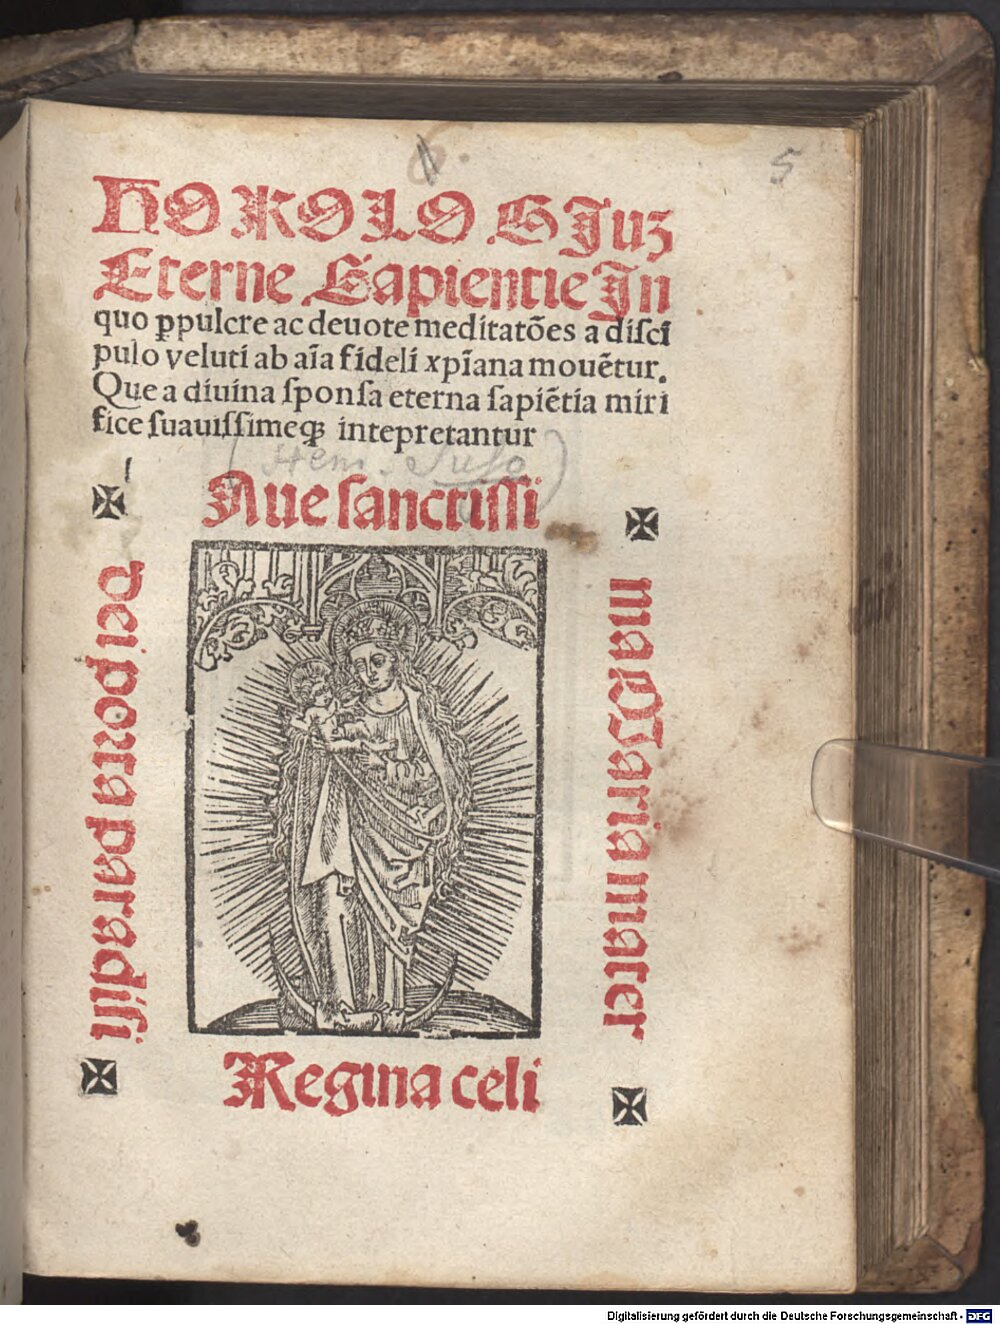 5
HOROLOGIuꝫ
Eterne Sapientie In
quo ꝓpulcre ac deuote meditatões a diſci
pulo veluti ab aīa fideli xpīana mouẽtur.
Que a diuina ſponſa eterna ſapiẽtia miri
fice ſuauiſſimeqꝫ intepretantur
(Henr. Suſo)
Aue ſanctiſſi
ma Maria mater
Regina celi
Dei porta paradiſi
Digitalisierung gefördert durch die Deutsche Forschungsgemeinschaft - DFG